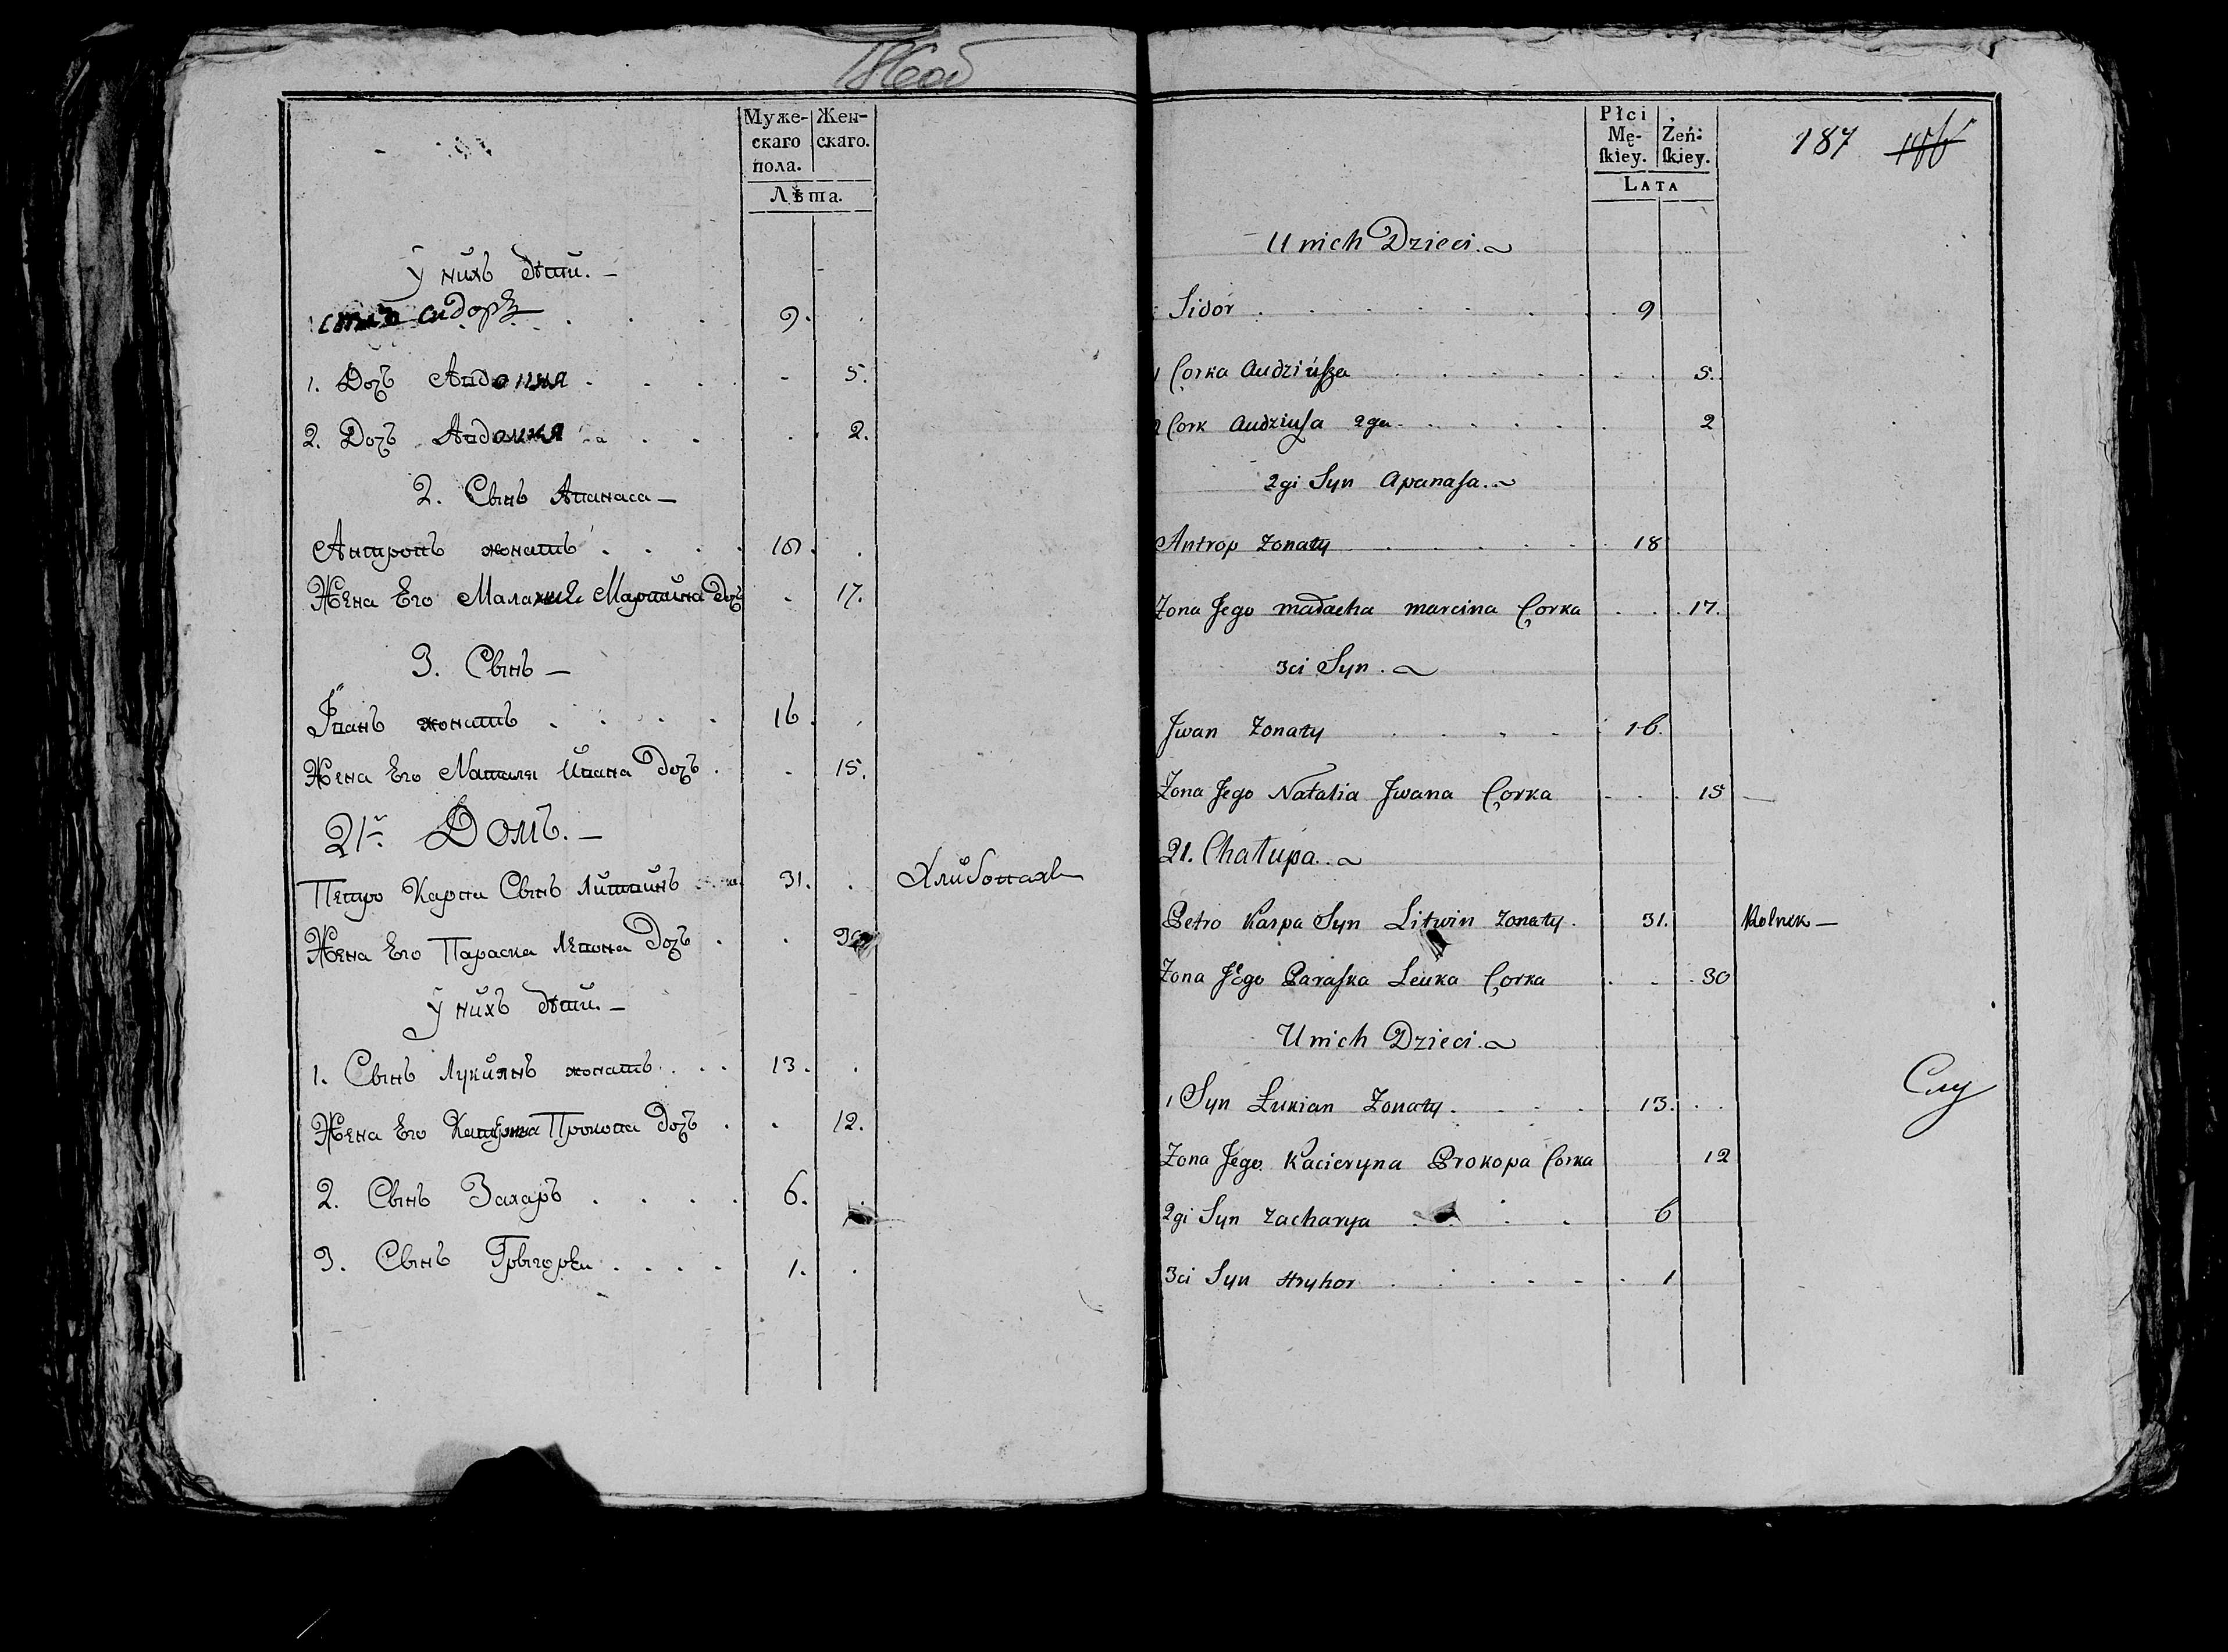 Муже-
скаго
пола.
Жен-
скаго.
Лѣта.
У нихъ дѣти. —
Сидоръ . . . 9.
1. Дочъ Авдоция . . . . - 5.
2. Дочъ . . . 2.
2. Сынъ Апанаса —
Антропъ жонатъ . . . . 18. .
Жена Его Мартина Дочъ - 17.
3. Сынъ —
Іванъ жонатъ . . . . 16. .
Жена Его Наталя Ивана Дочъ . - 15.
21й Домъ. —
Петро Карпа Сынъ Литвинъ 31. . Хлибопахъ
Жена Его Параска Левона Дочъ . .
У нихъ дѣти. —
1. Сынъ Лукиянъ жонатъ . . . 13. .
Жена Его Прокопа Дочъ . . 12.
2. Сынъ Захаръ . . . . 6. .
3. Сынъ . . . . 1. .
Płci
Mę-
ſkiey.
Żeń:
ſkiey.
LATA
187
U nich Dzieci.
Sidor . . . . . . 9
1 Corka Audziuſza . . . . . . 5.
2 Cork Audziuſa 2ga . . . . . 2
2gi Syn Apanaſa.
Antrop Zonaty . . . . . 18
Zona Jego madacha marcina Corka . . . 17.
3ci Syn.
Jwan Zonaty . . . . 16.
Zona Jego Natalia Jwana Corka . . . 15 —
21. Chałupa.
Petro Karpa Syn Litwin Zonaty . 31. Rolnik —
Zona Jego Paraſka Leuka Corka . . . 30
U nich Dzieci.
1 Syn Łukian Zonaty . . . . 13. . .
Zona Jego Kacieryna Prokopa Corka 12
2gi Syn Zacharya . . . 6
3ci Syn Hryhor . . . . . 1
Слу